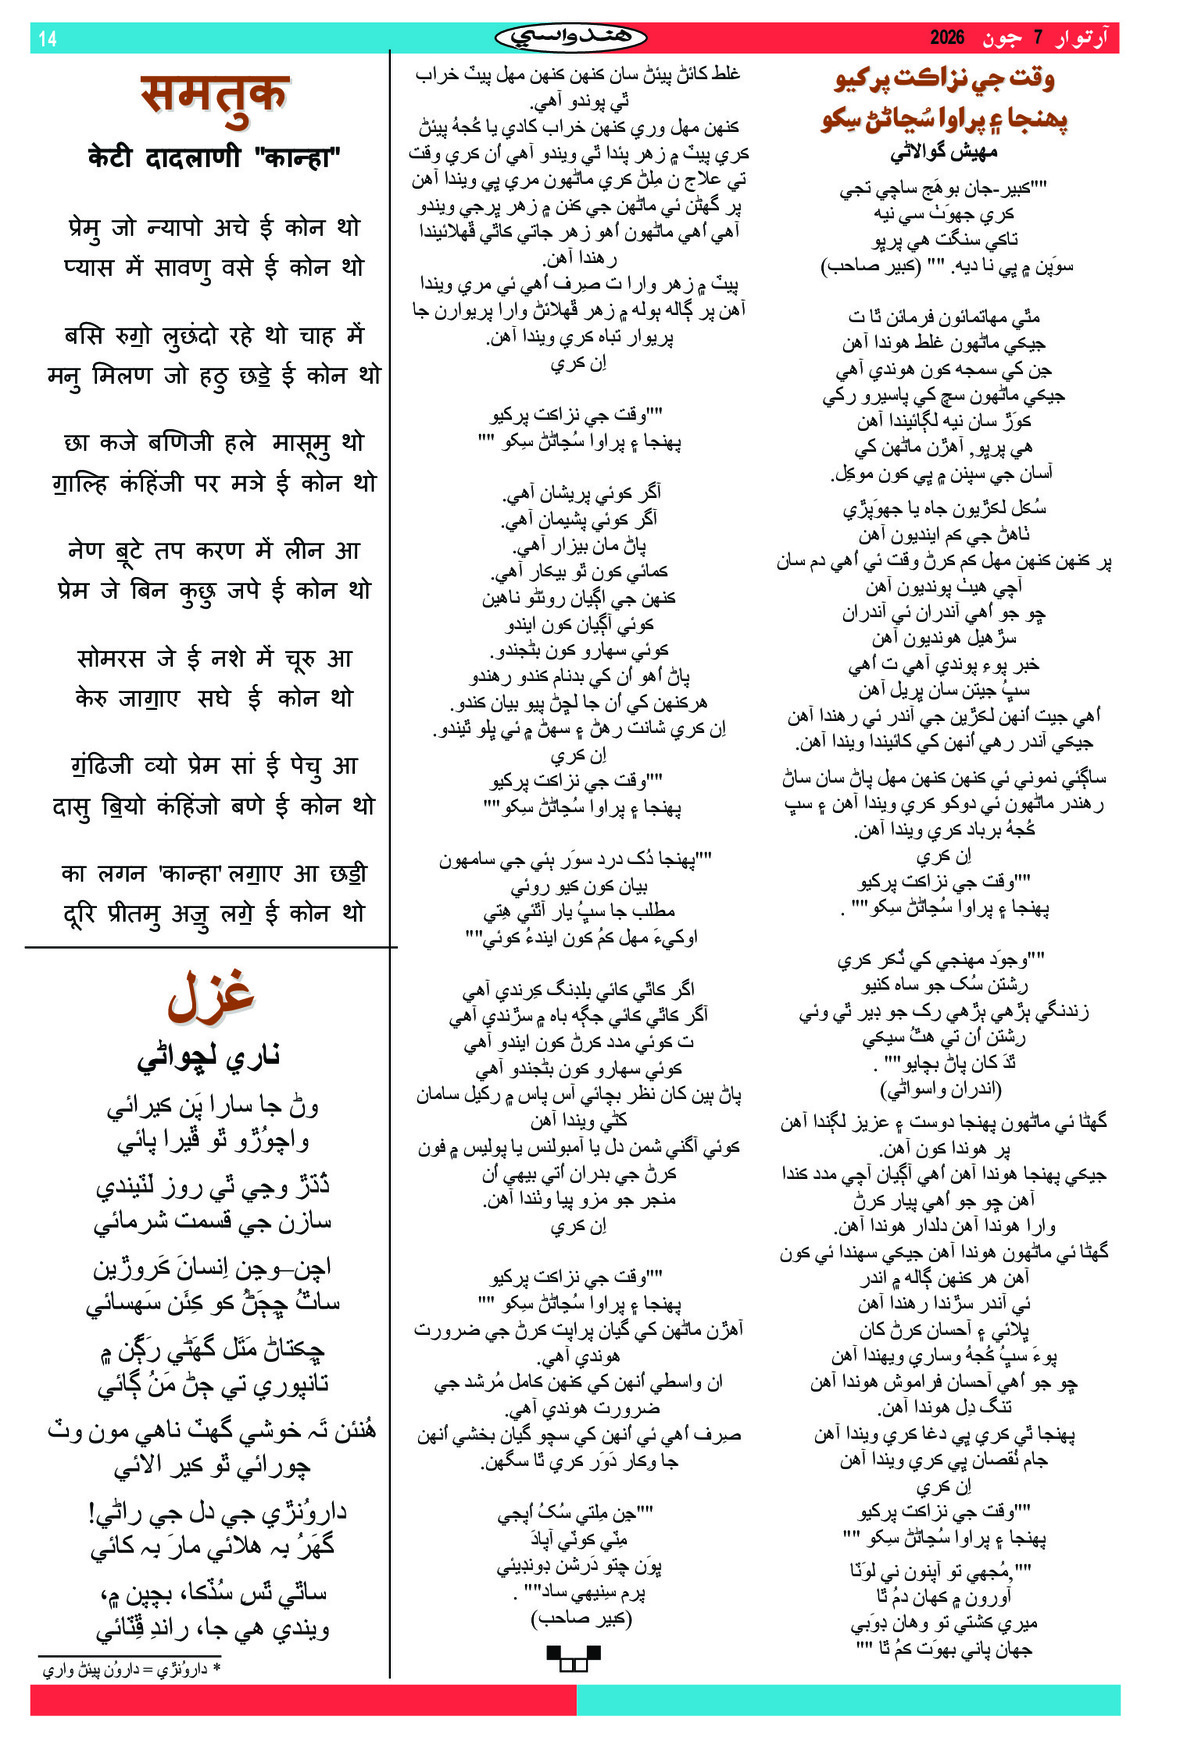 آرتوار 7 جون 2026
هندواسي
14
وقت جي نزاڪت پرکيو
پهنجا ۽ پراوا سُڃاڻڻ سِکو
مهيش گوالاڻي
""ڪبير-جان بوهَج ساچي تجي
ڪري جهوَٺ سي نيه
تاکي سنگت هي پرڀو
سوَپن ۾ ڀي نا ديه. "" (ڪبير صاحب)
مٿي مهاتمائون فرمائن ٿا ت
جيڪي ماڻهون غلط هوندا آهن
جن کي سمجه ڪون هوندي آهي
جيڪي ماڻهون سچ کي پاسيرو رکي
ڪوَڙ سان نيه لڳائيندا آهن
هي پرڀو, آهڙن ماڻهن کي
آسان جي سپنن ۾ ڀي ڪون موڪِل.
سُڪل لڪڙيون جاه يا جهوَپڙي
ٺاهڻ جي ڪم اينديون آهن
پر ڪنهن ڪنهن مهل ڪم ڪرڻ وقت ئي اُهي دم سان
آچي هيٺ پونديون آهن
ڇو جو اُهي آندران ئي آندران
سڙهيل هونديون آهن
خبر پوء پوندي آهي ت اُهي
سڀُ جيتن سان ڀريل آهن
اُهي جيت اُنهن لڪڙين جي آندر ئي رهندا آهن
جيڪي آندر رهي اُنهن کي کائيندا ويندا آهن.
ساڳئي نموني ئي ڪنهن ڪنهن مهل پاڻ سان ساڻ
رهندر ماڻهون ئي دوکو ڪري ويندا آهن ۽ سڀ
ڪُجهُ برباد ڪري ويندا آهن.
اِن ڪري
""وقت جي نزاڪت پرکيو
پهنجا ۽ پراوا سُڃاڻڻ سِکو"" .
""وجوَد مهنجي کي ٽُڪر ڪري
رِشتن سُک جو ساه کنيو
زندنگي ٻڙهي ٻڙهي رک جو ڍِير ٿي وئي
رِشتن اُن تي هٿُ سيڪي
ٿڌَ کان پاڻ بچايو"" .
(اندران واسواڻي)
گهڻا ئي ماڻهون پهنجا دوست ۽ عزيز لڳندا آهن
پر هوندا ڪون آهن.
جيڪي پهنجا هوندا آهن اُهي آڳيان آچي مدد ڪندا
آهن ڇو جو اُهي پيار ڪرڻ
وارا هوندا آهن دلدار هوندا آهن.
گهڻا ئي ماڻهون هوندا آهن جيڪي سهندا ئي ڪون
آهن هر ڪنهن ڳاله ۾ اندر
ئي آندر سڙندا رهندا آهن
ڀلائي ۽ آحسان ڪرڻ کان
پوءَ سڀُ ڪُجهُ وساري ويهندا آهن
ڇو جو اُهي آحسان فراموش هوندا آهن
تنگ دِل هوندا آهن.
پهنجا ٿي ڪري ڀي دغا ڪري ويندا آهن
جام نُقصان ڀي ڪري ويندا آهن
اِن ڪري
""وقت جي نزاڪت پرکيو
پهنجا ۽ پراوا سُڃاڻڻ سِکو ""
"",مُجهي تو آپنون ني لوَٽا
آورون ۾ کهان دمُ ٿا
ميري ڪشتي تو وهان ڊوَبي
جهان پاني بهوَت ڪمُ ٿا ""
غلط کائڻ پيئڻ سان ڪنهن ڪنهن مهل پيٽ خراب
ٿي پوندو آهي.
ڪنهن مهل وري ڪنهن خراب کادي يا ڪُجهُ پيئڻ
ڪري پيٽ ۾ زهر پئدا ٿي ويندو آهي اُن ڪري وقت
تي علاج ن مِلڻ ڪري ماڻهون مري ڀي ويندا آهن
پر گهڻن ئي ماڻهن جي ڪَنن ۾ زهر ڀرجي ويندو
آهي اُهي ماڻهون اُهو زهر جاتي کاٿي ڦهلائيندا
رهندا آهن.
پيٽ ۾ زهر وارا ت صِرف اُهي ئي مري ويندا
آهن پر ڳاله ٻوله ۾ زهر ڦهلائڻ وارا پريوارن جا
پريوار تباه ڪري ويندا آهن.
اِن ڪري
""وقت جي نزاڪت پرکيو
پهنجا ۽ پراوا سُڃاڻڻ سِکو ""
آگر ڪوئي پريشان آهي.
آگر ڪوئي پشيمان آهي.
پاڻ مان بيزار آهي.
ڪمائي ڪون ٿو بيڪار آهي.
ڪنهن جي اڳيان روئڻو ناهين
ڪوئي آڳيان ڪون ايندو
ڪوئي سهارو ڪون بڻجندو.
پاڻ اُهو اُن کي بدنام ڪندو رهندو
هرڪنهن کي اُن جا لڇڻ پيو بيان ڪندو.
اِن ڪري شانت رهڻ ۽ سهڻ ۾ ئي ڀلو ٿيندو.
اِن ڪري
""وقت جي نزاڪت پرکيو
پهنجا ۽ پراوا سُڃاڻڻ سِکو""
""پهنجا دُک درد سوَر ٻئي جي سامهون
بيان ڪون ڪيو روئي
مطلب جا سڀُ يار آٿئي هِتي
اوکيءَ مهل ڪمُ ڪون ايندءُ ڪوئي""
اگر کاٿي کائي بلڊنگ ڪِرندي آهي
آگر کاٿي کائي جڳه باه ۾ سڙندي آهي
ت ڪوئي مدد ڪرڻ ڪون ايندو آهي
ڪوئي سهارو ڪون بڻجندو آهي
پاڻ ٻين کان نظر بچائي آس پاس ۾ رکيل سامان
کڻي ويندا آهن
ڪوئي آگني شمن دل يا آمبولنس يا پوليس ۾ فون
ڪرڻ جي بدران اُتي بيهي اُن
منجر جو مزو پيا وٺندا آهن.
اِن ڪري
""وقت جي نزاڪت پرکيو
پهنجا ۽ پراوا سُڃاڻڻ سِکو ""
آهڙن ماڻهن کي گيان پراپت ڪرڻ جي ضرورت
هوندي آهي.
ان واسطي اُنهن کي ڪنهن ڪامل مُرشد جي
ضرورت هوندي آهي.
صِرف اُهي ئي اُنهن کي سچو گيان بخشي اُنهن
جا وڪار دَوَر ڪري ٿا سگهن.
""جِن مِلتي سُکُ اُپجي
مِٽي ڪوٽي آپاڌَ
ڀوَن چتو دَرشن ڊوندِيئي
پرم سِنيهي ساد"" .
(ڪبير صاحب)
समतुक
केटी दादलाणी "कान्हा"
प्रेमु जो न्यापो अचे ई कोन थो
प्यास में सावणु वसे ई कोन थो
बसि रुगो॒ लुछंदो रहे थो चाह में
मनु मिलण जो हठु छडे॒ ई कोन थो
छा कजे बणिजी हले मासूमु थो
गा॒ल्हि कंहिंजी पर मञे ई कोन थो
नेण बूटे तप करण में लीन आ
प्रेम जे बिन कुछु जपे ई कोन थो
सोमरस जे ई नशे में चूरु आ
केरु जागा॒ए सघे ई कोन थो
गं॒ढिजी व्यो प्रेम सां ई पेचु आ
दासु बि॒यो कंहिंजो बणे ई कोन थो
का लगन 'कान्हा' लगा॒ए आ छडी॒
दूरि प्रीतमु अजु॒ लगे॒ ई कोन थो
غزل
ناري لڇواڻي
وڻ جا سارا پَن ڪيرائي
واچوُڙو ٿو ڦيرا پائي
ڌُتڙ وڃي ٿي روز لُٽيندي
سازن جي قسمت شرمائي
اچن–وڃن اِنسانَ ڪَروڙين
ساٿُ ڇِڄَڻُ کو ڪِئَن سَهسائي
ڇِڪتاڻ مَتَل گهَڻي رَڳُن ۾
تانپوري تي ڄڻ مَنُ ڳائي
هُنئن تَہ خوشي گهٽ ناهي مون وٽ
چورائي ٿو ڪير الائي
داروُنڙي جي دل جي راڻي!
گهَرُ بہ هلائي مارَ بہ کائي
ساٿي ٿَس سُڏڪا، بچپن ۾،
ويندي هي جا، راندِ ڦِٽائي
* داروُنڙي = داروُن پيئڻ واري